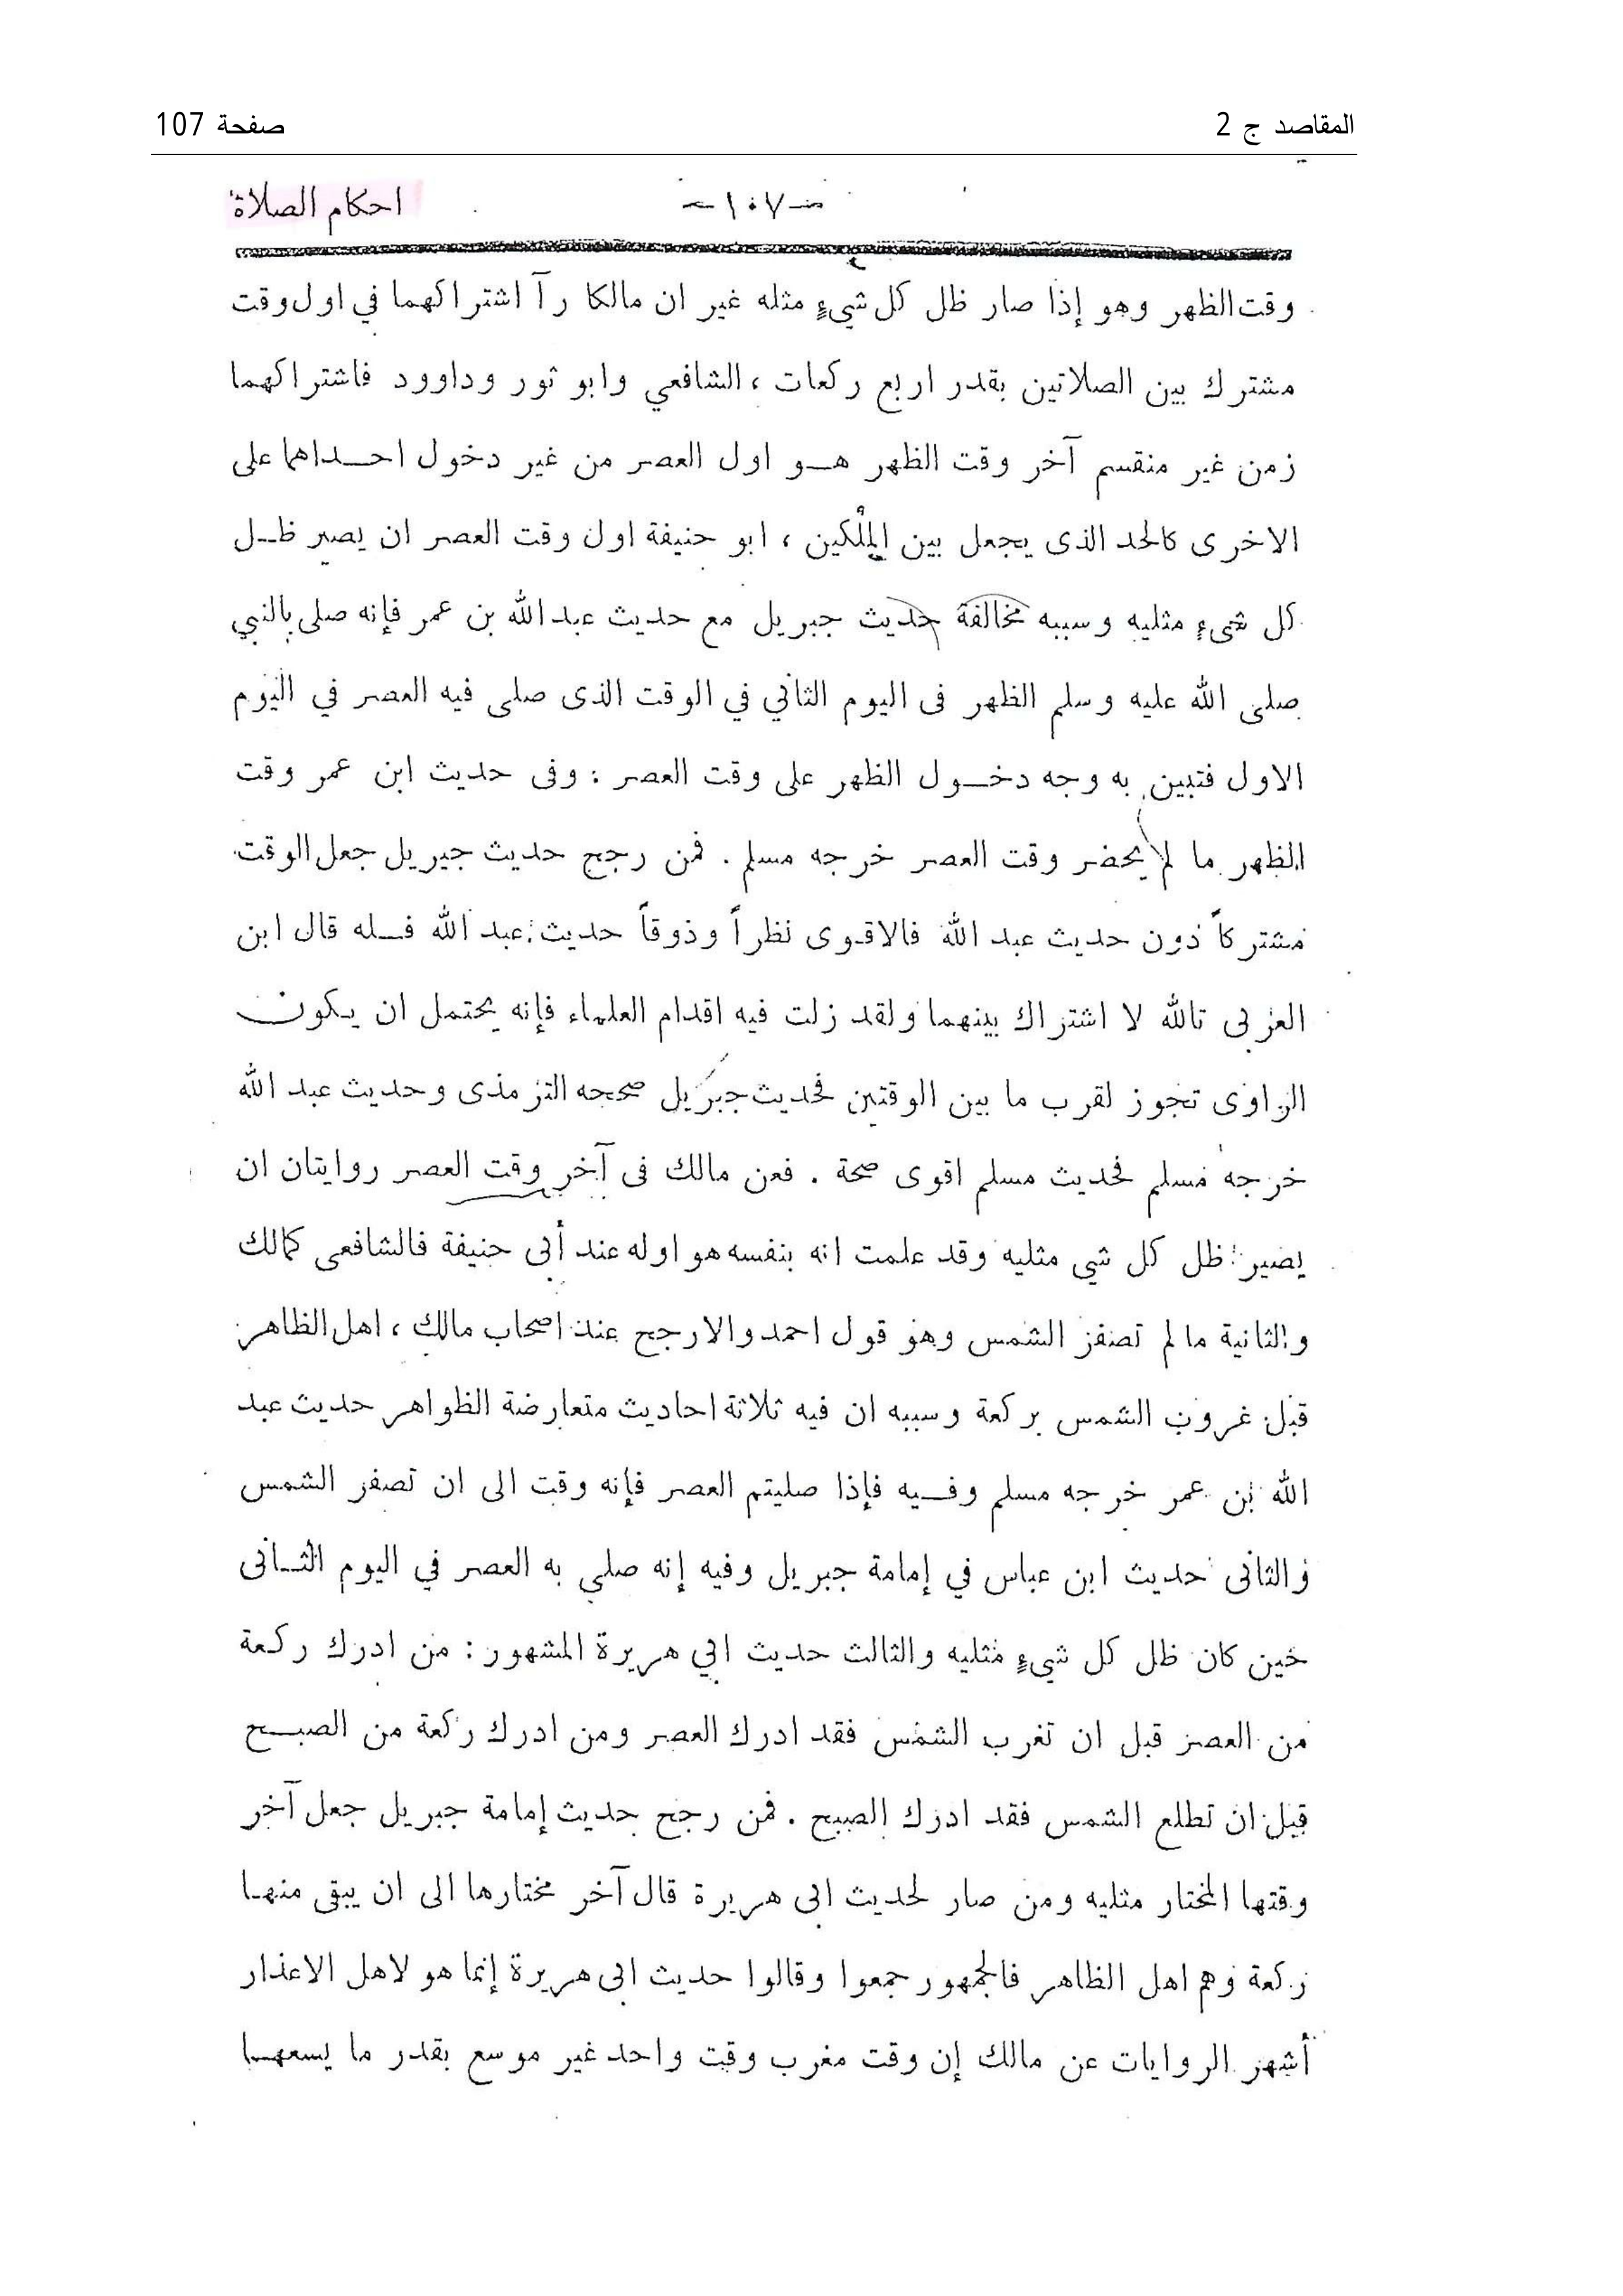 المقاصد ج 2
صفحة 107
احكام الصلاة
- ١٠٧ -
وقت الظهر وهو إذا صار ظل كل شيءٍ مثله غير ان مالكا رآ اشتراكهما في اول وقت
مشترك بين الصلاتين بقدر اربع ركعات ، الشافعي وابو ثور وداوود فاشتراكهما
زمن غير منقسم آخر وقت الظهر هو اول العصر من غير دخول احداهما على
الاخرى كالحد الذى يجعل بين الملكين ، ابو حنيفة اول وقت العصر ان يصير ظل
كل شىءٍ مثليه وسببه مخالفة حديث جبريل مع حديث عبد الله بن عمر فإنه صلى بالنبي
صلى الله عليه وسلم الظهر فى اليوم الثاني في الوقت الذى صلى فيه العصر في اليوم
الاول فتبين به وجه دخول الظهر على وقت العصر : وفى حديث ابن عمر وقت
الظهر ما لم يحضر وقت العصر خرجه مسلم . فمن رجح حديث جبريل جعل الوقت
مشتركاً دون حديث عبد الله فالاقوى نظراً وذوقاً حديث عبد الله فله قال ابن
العربى تالله لا اشتراك بينهما ولقد زلت فيه اقدام العلماء فإنه يحتمل ان يكون
الراوى تجوز لقرب ما بين الوقتين فحديث جبريل صححه الترمذى وحديث عبد الله
خرجه مسلم فحديث مسلم اقوى صحة . فعن مالك فى آخر وقت العصر روايتان ان
يصير ظل كل شي مثليه وقد علمت انه بنفسه هو اوله عند أبى حنيفة فالشافعى كمالك
والثانية ما لم تصفر الشمس وهو قول احمد والارجح عند اصحاب مالك ، اهل الظاهر
قبل غروب الشمس بركعة وسببه ان فيه ثلاثة احاديث متعارضة الظواهر حديث عبد
الله بن عمر خرجه مسلم وفيه فإذا صليتم العصر فإنه وقت الى ان تصفر الشمس
والثانى حديث ابن عباس في إمامة جبريل وفيه إنه صلي به العصر في اليوم الثانى
حين كان ظل كل شيءٍ مثليه والثالث حديث ابي هريرة المشهور : من ادرك ركعة
من العصر قبل ان تغرب الشمس فقد ادرك العصر ومن ادرك ركعة من الصبح
قبل ان تطلع الشمس فقد ادرك الصبح . فمن رجح حديث إمامة جبريل جعل آخر
وقتها المختار مثليه ومن صار لحديث ابى هريرة قال آخر مختارها الى ان يبقى منها
ركعة وهم اهل الظاهر فالجمهور جمعوا وقالوا حديث ابى هريرة إنما هو لاهل الاعذار
أشهر الروايات عن مالك إن وقت مغرب وقت واحد غير موسع بقدر ما يسعها